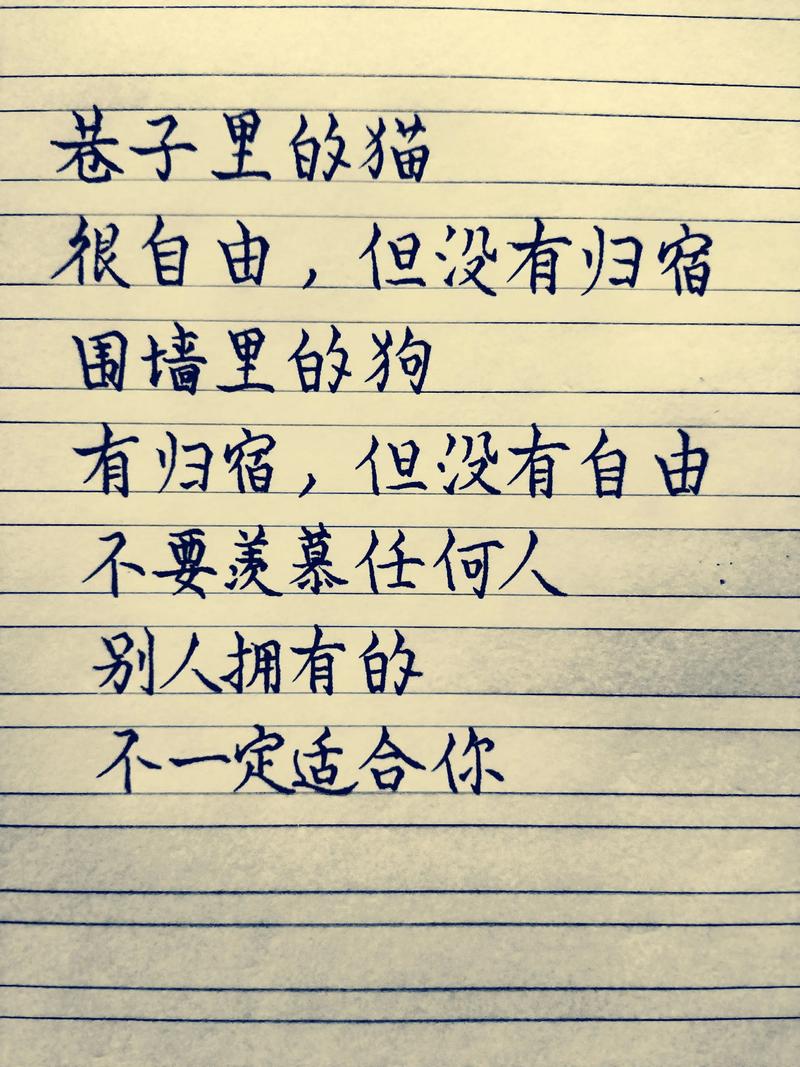 巷子里的猫
很自由，但没有归宿
围墙里的狗
有归宿，但没有自由
不要羡慕任何人
别人拥有的
不一定适合你